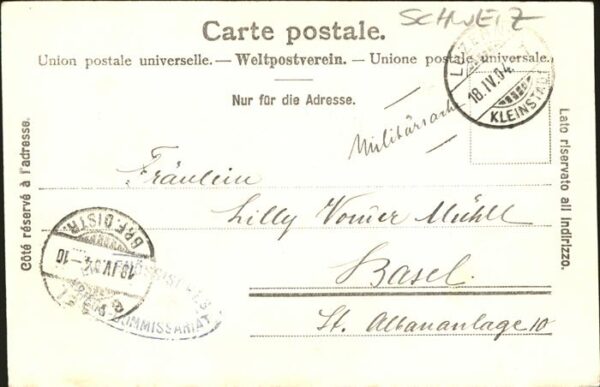 SCHWEIZ
Carte postale.
Union postale universelle. — Weltpostverein. — Unione postale universale.
18.IV.04.
KLEINSTADT
Nur für die Adresse.
Militärsache
Côté réservé à l'adresse.
Lato riservato all indirizzo.
Fräulein
Lilly Vonder Mühll
Basel
St. Albananlage 10
BRF. DISTR.
19.IV.04-10
KOMMISSARIAT